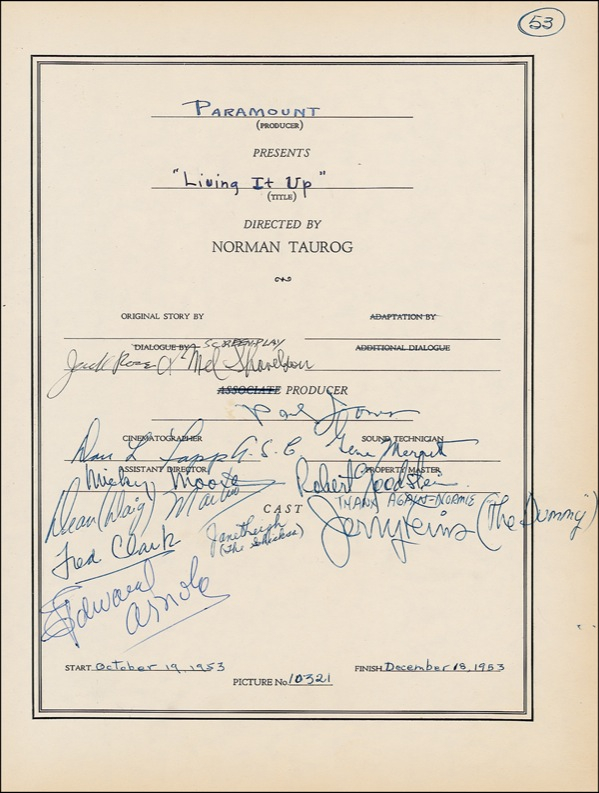 53
PARAMOUNT
(PRODUCER)
PRESENTS
"Living It Up"
(TITLE)
DIRECTED BY
NORMAN TAUROG
ORIGINAL STORY BY
ADAPTATION BY
DIALOGUE BY SCREENPLAY
ADDITIONAL DIALOGUE
Jack Rose & Mel Shavelson
ASSOCIATE PRODUCER
Paul Jones
CINEMATOGRAPHER
SOUND TECHNICIAN
Dan L Fapp A.S.C
Gene Merritt
ASSISTANT DIRECTOR
PROPERTY MASTER
Mickey Moore
Robert Goodstein
Dean (Daig) Martin
THANX AGAIN-NORMIE
CAST
Janet Leigh
(The
Jerry Lewis (The Dummy)
Fred Clark
Edward
Arnold
START October 19, 1953
FINISH December 18, 1953
PICTURE No. 10321